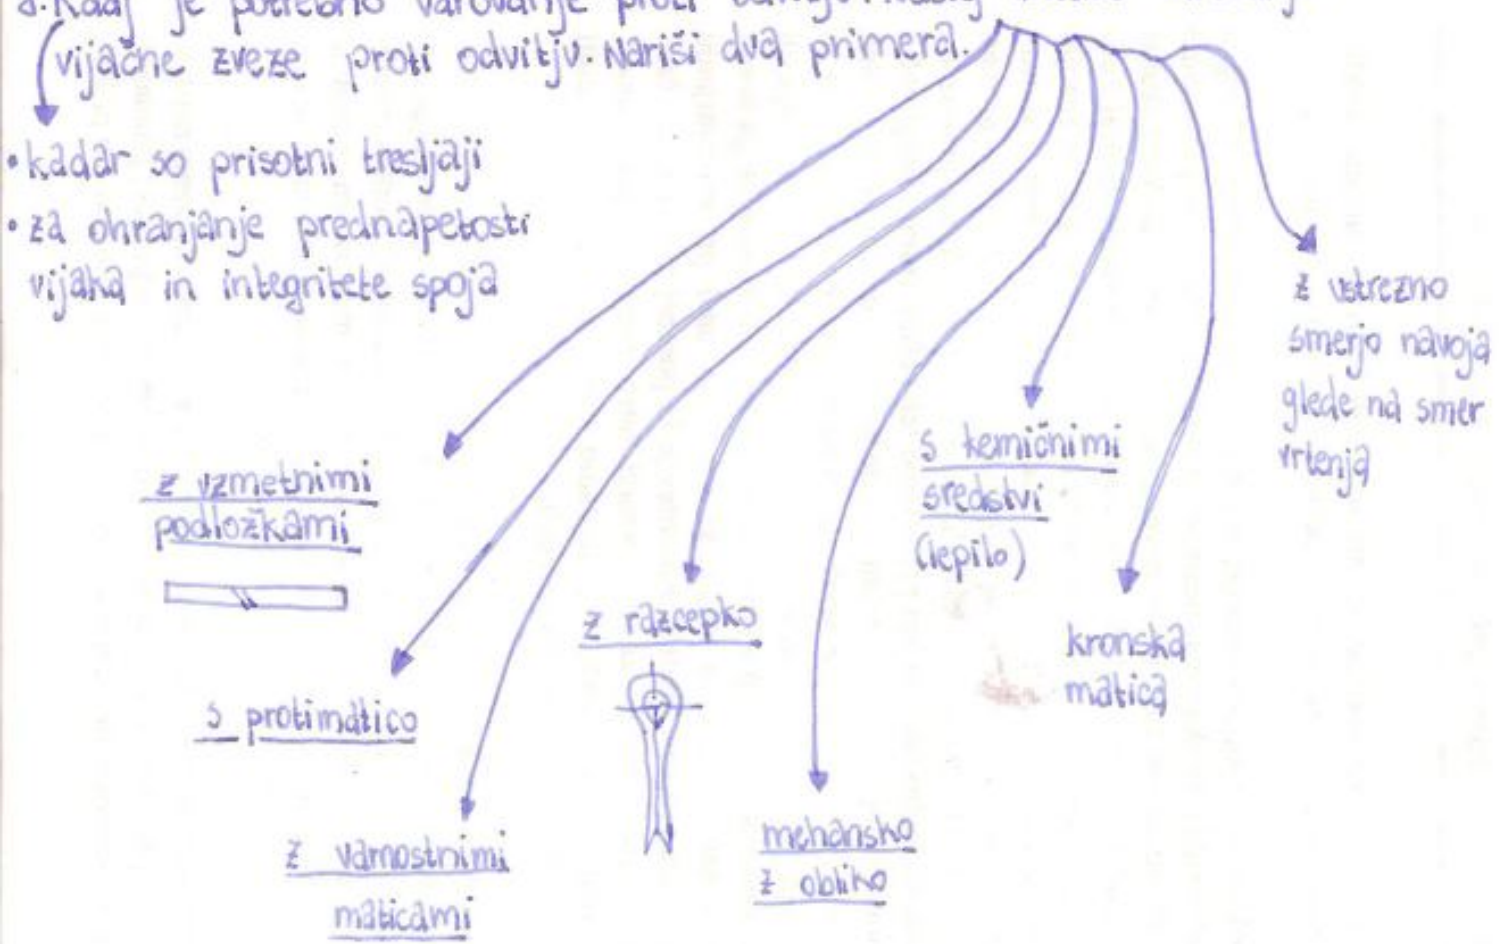 vijačne zveze proti odvitju. Nariši dva primera.
• kadar so prisotni tresljaji
• za ohranjanje prednapetosti
vijaka in integritete spoja
z vzmetnimi
podložkami
s protimatico
z varnostnimi
maticami
z razcepko
mehansko
z obliko
s kemičnimi
sredstvi
(lepilo)
kronska
matica
z ustrezno
smerjo navoja
glede na smer
vrtenja